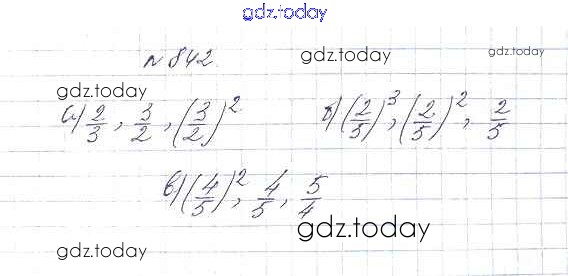 gdz.today
№ 842.
gdz.today
gdz.today
gdz.today
а) 2/3, 3/2, (3/2)²
б) (2/5)³, (2/5)², 2/5
в) (4/5)², 4/5, 5/4
gdz.today
gdz.today